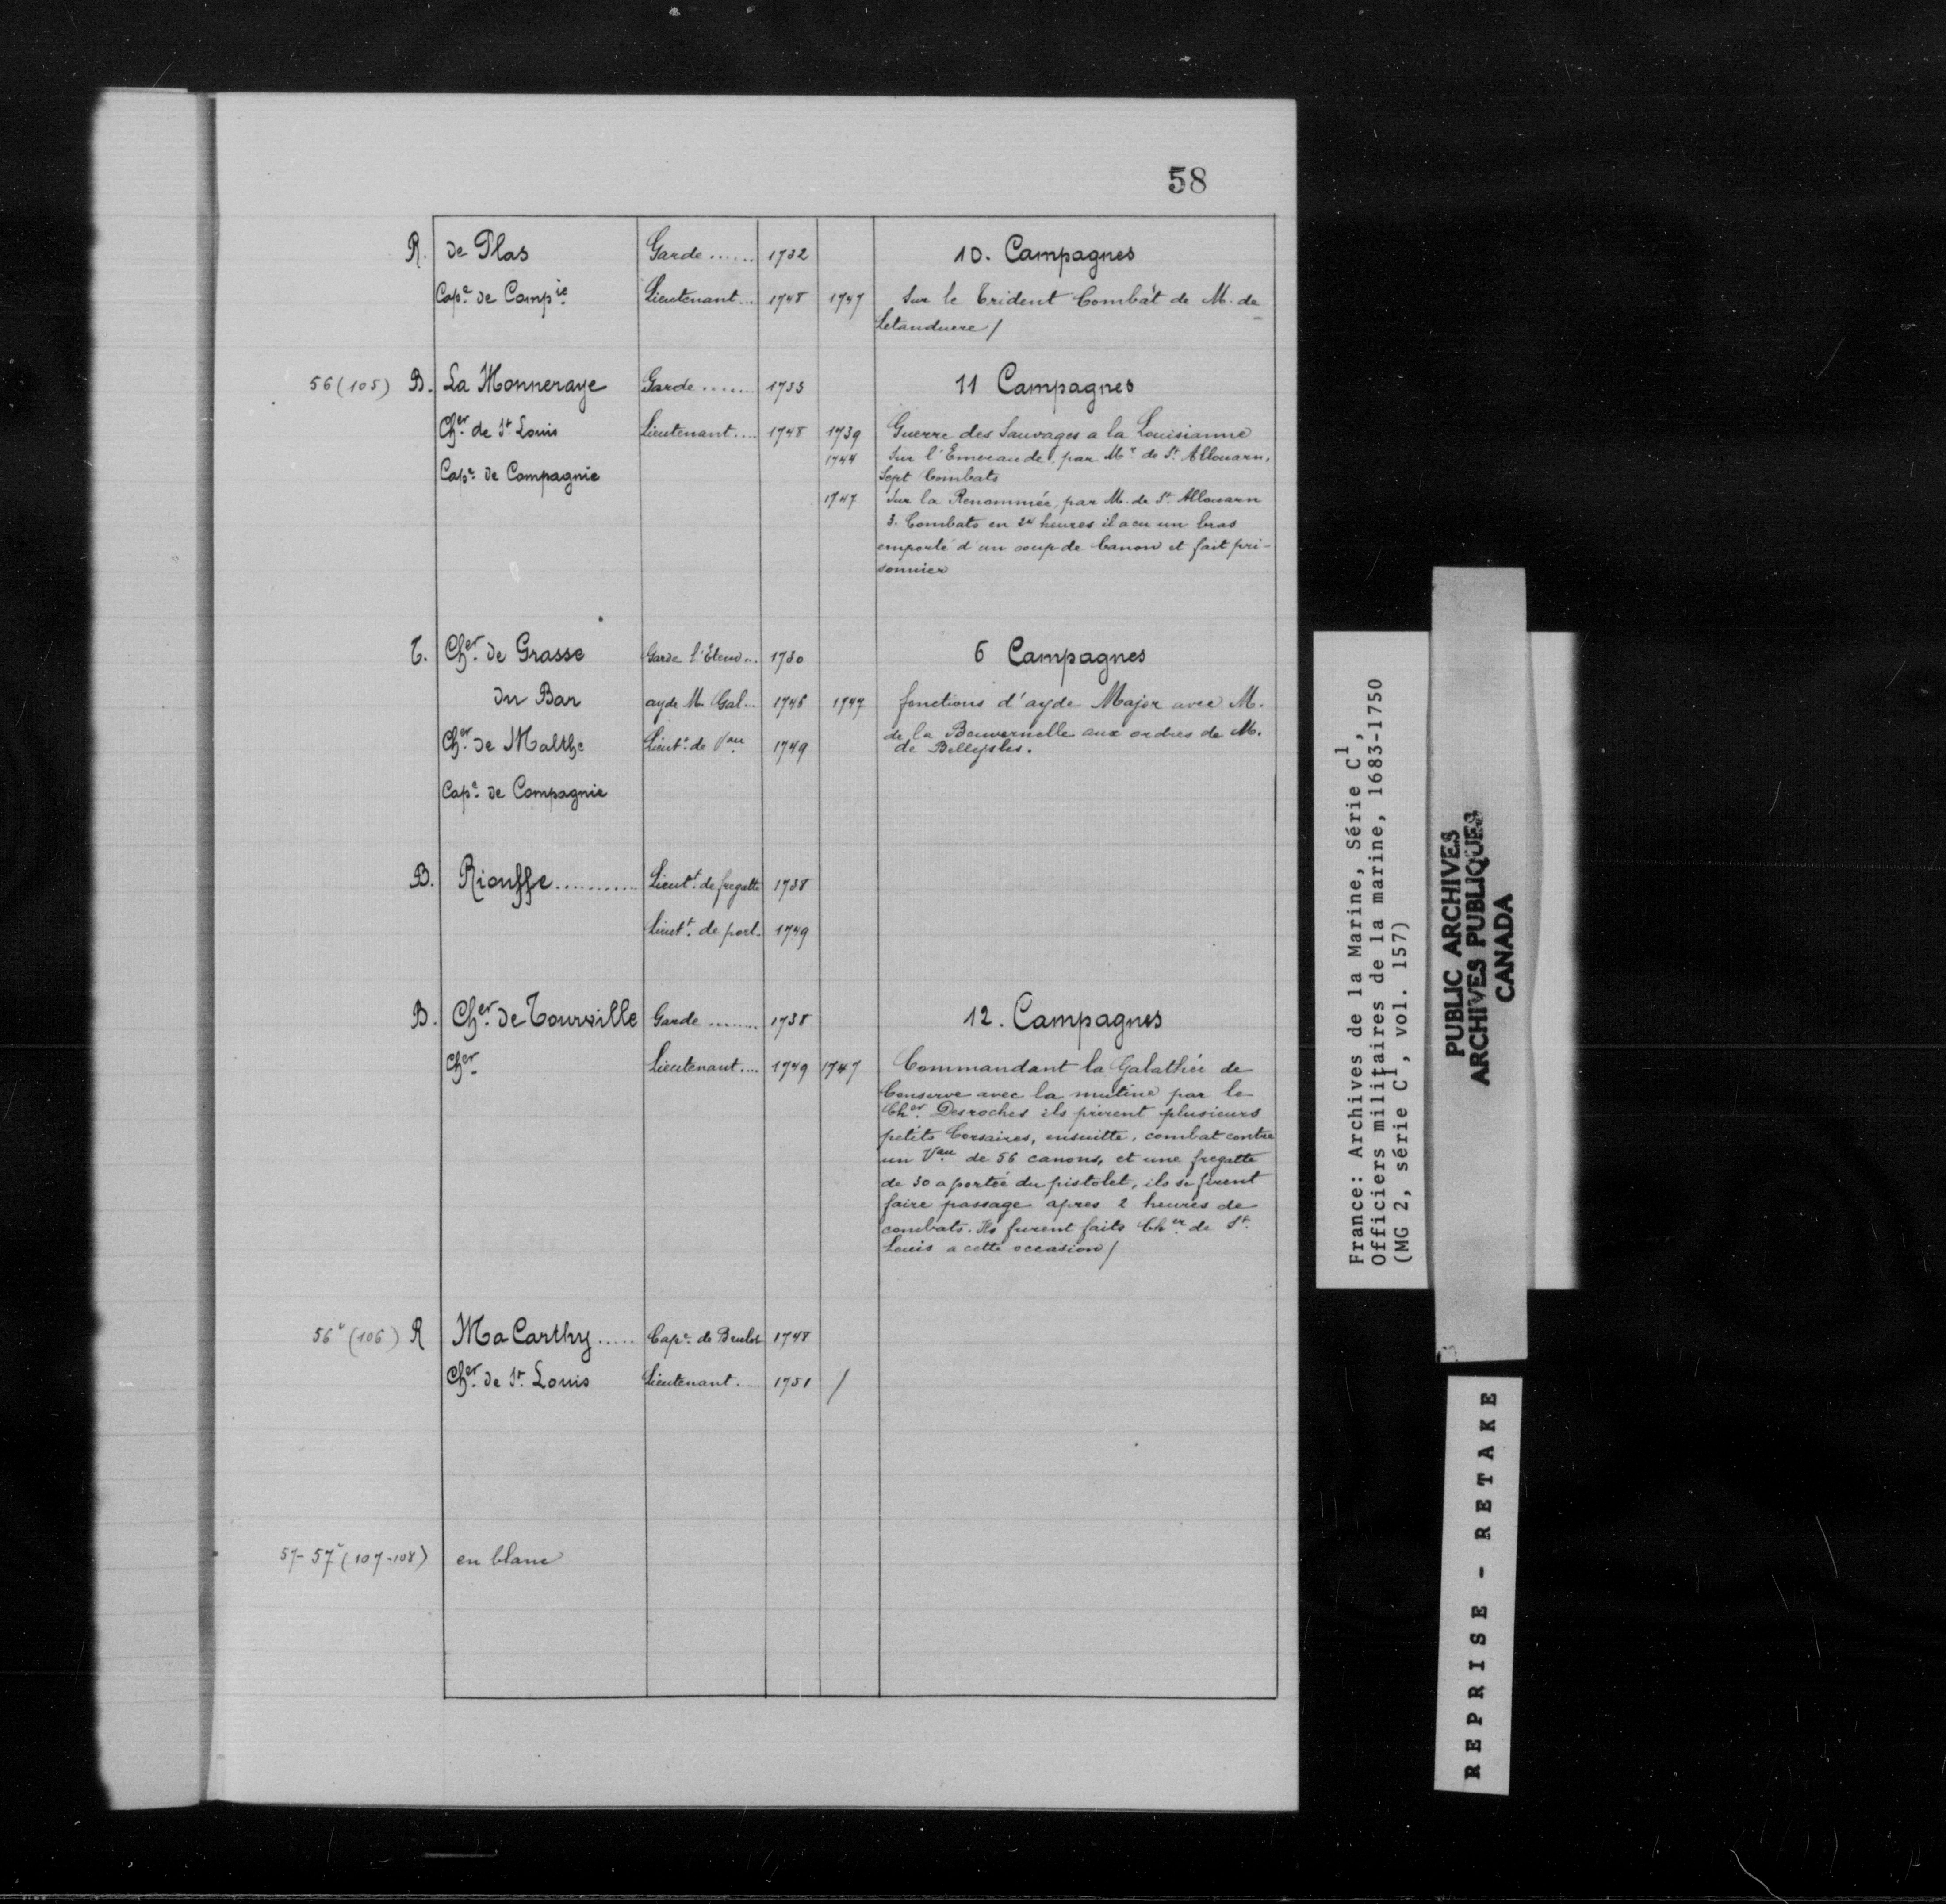 58
R. de Plas Garde ...... 1732 10. Campagnes
Cape. de Compie. Lieutenant... 1748 1747 Sur le Trident Combat de M. de
Letanduere /
56 (105) B. La Monneraye Garde ...... 1733 11 Campagnes
Cher. de St. Louis Lieutenant.... 1748 1739 Guerre des Sauvages a la Louisianne
1744 Sur l'Emeraude, par Mr. de St. Allouarn,
Cape. de Compagnie Sept Combats
1747 Sur la Renommée, par M. de St. Allouarn
3. Combats en 24 heures il a eu un bras
emporté d'un coup de Canon et fait pri-
sonnier
T. Cher. de Grasse Garde l'Etend... 1730 6 Campagnes
du Bar ayde M. Gal... 1746 1747 fonctions d'ayde Major avec M.
de la Bouvernelle aux ordres de M.
Cher. de Malthe Lieut. de Vau. 1749 de Belleisles.
Cape. de Compagnie
B. Riouffe........... Lieutt. de fregatte 1738
Lieutt. de port. 1749
B. Cher. de Tourville Garde ........ 1738 12. Campagnes
Cher. Lieutenant.... 1749 1747 Commandant la Galathée de
Conserve avec la mutine par le
Cher. Desroches ils prirent plusieurs
petits Corsaires, ensuitte, combat contre
un Vau. de 56 canons, et une fregatte
de 30 a portée du pistolet, ils se firent
faire passage apres 2 heures de
combats. Ils furent faits Cher. de St.
Louis a cette occasion /
56v (106) R Ma Carthy..... Cape. de Brulot 1748
Cher. de St. Louis Lieutenant.... 1751 /
57-57v (107-108) en blanc
France: Archives de la Marine, Série C1,
Officiers militaires de la marine, 1683-1750
(MG 2, série C1, vol. 157)
PUBLIC ARCHIVES
ARCHIVES PUBLIQUES
CANADA
REPRISE - RETAKE